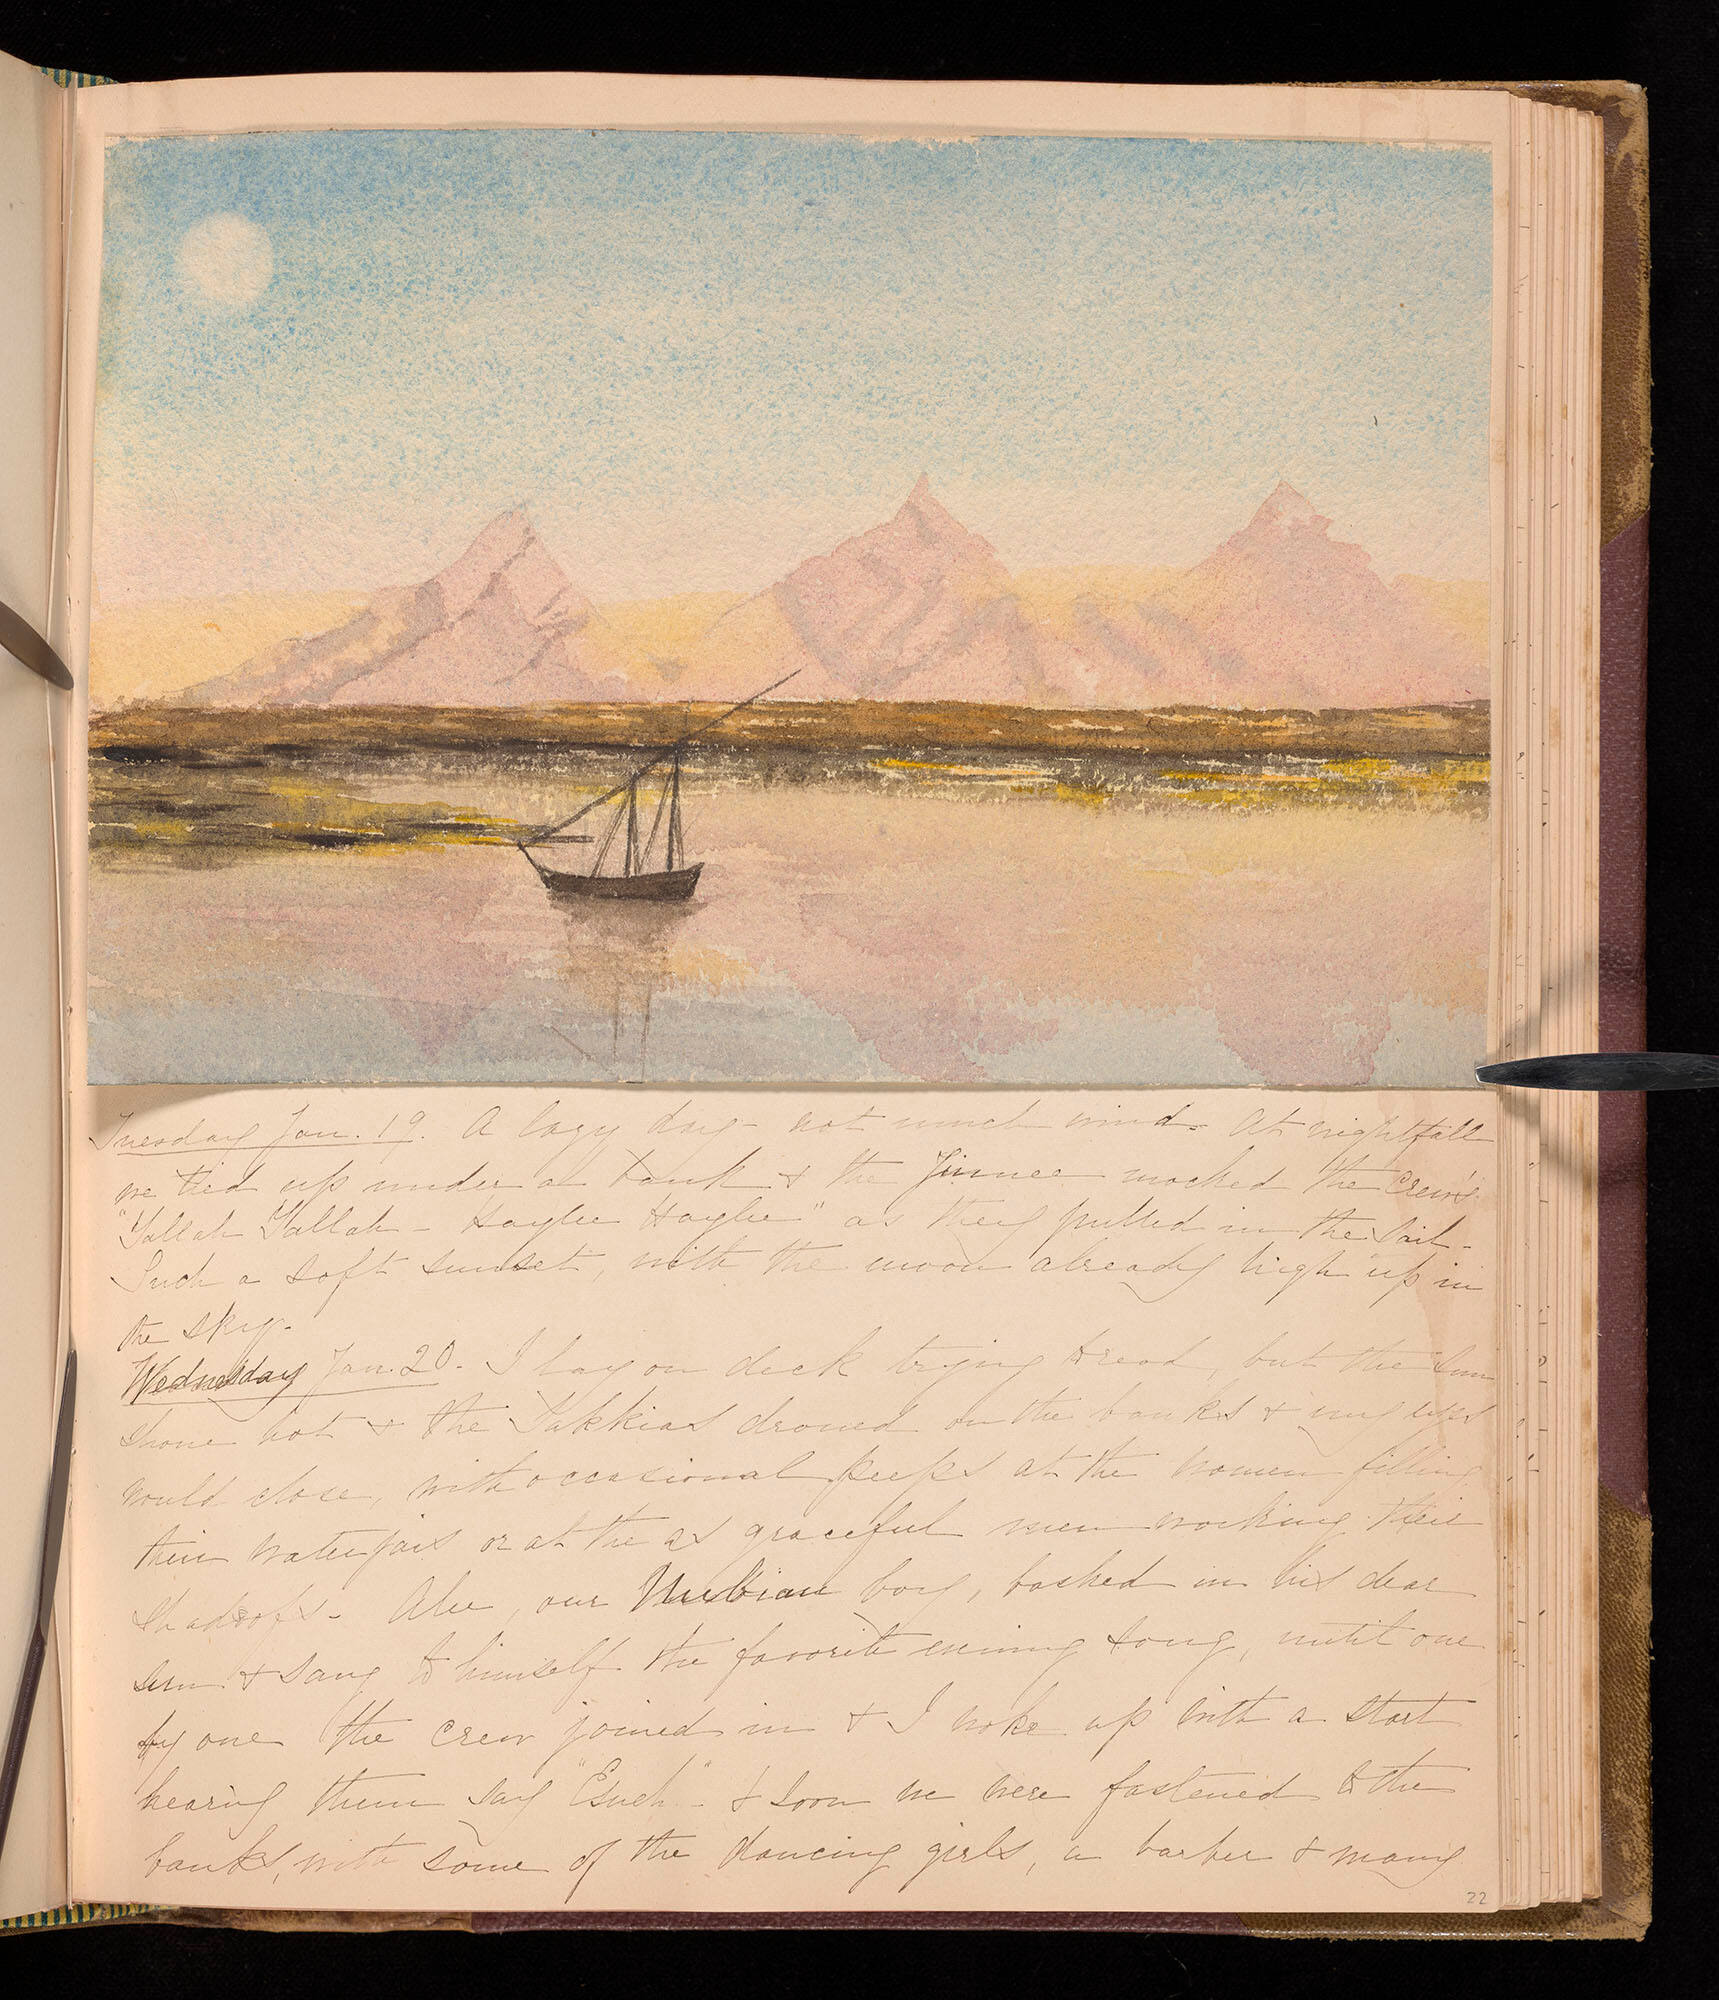 Tuesday Jan. 19. A lazy day - not much wind. At nightfall
we tied up under a bank & the Jinnee mocked the crew's
"Yallah Yallah - Haylee Haylee" as they pulled in the sail -
Such a soft sunset, with the moon already high up in
the sky.
Wednesday Jan. 20. I lay on deck trying to read, but the sun
shone hot & the Sakkias droned on the banks & my eyes
would close, with occasional peeps at the women filling
their water jars or at the as graceful men working their
Shadoofs - our Nubian boy, basked in his dear
sun & sang to himself the favorite evening song, until one
by one the crew joined in & I woke up with a start
hearing them say "Esneh" - & soon we were fastened to the
banks, with some of the dancing girls, a barber & many
22